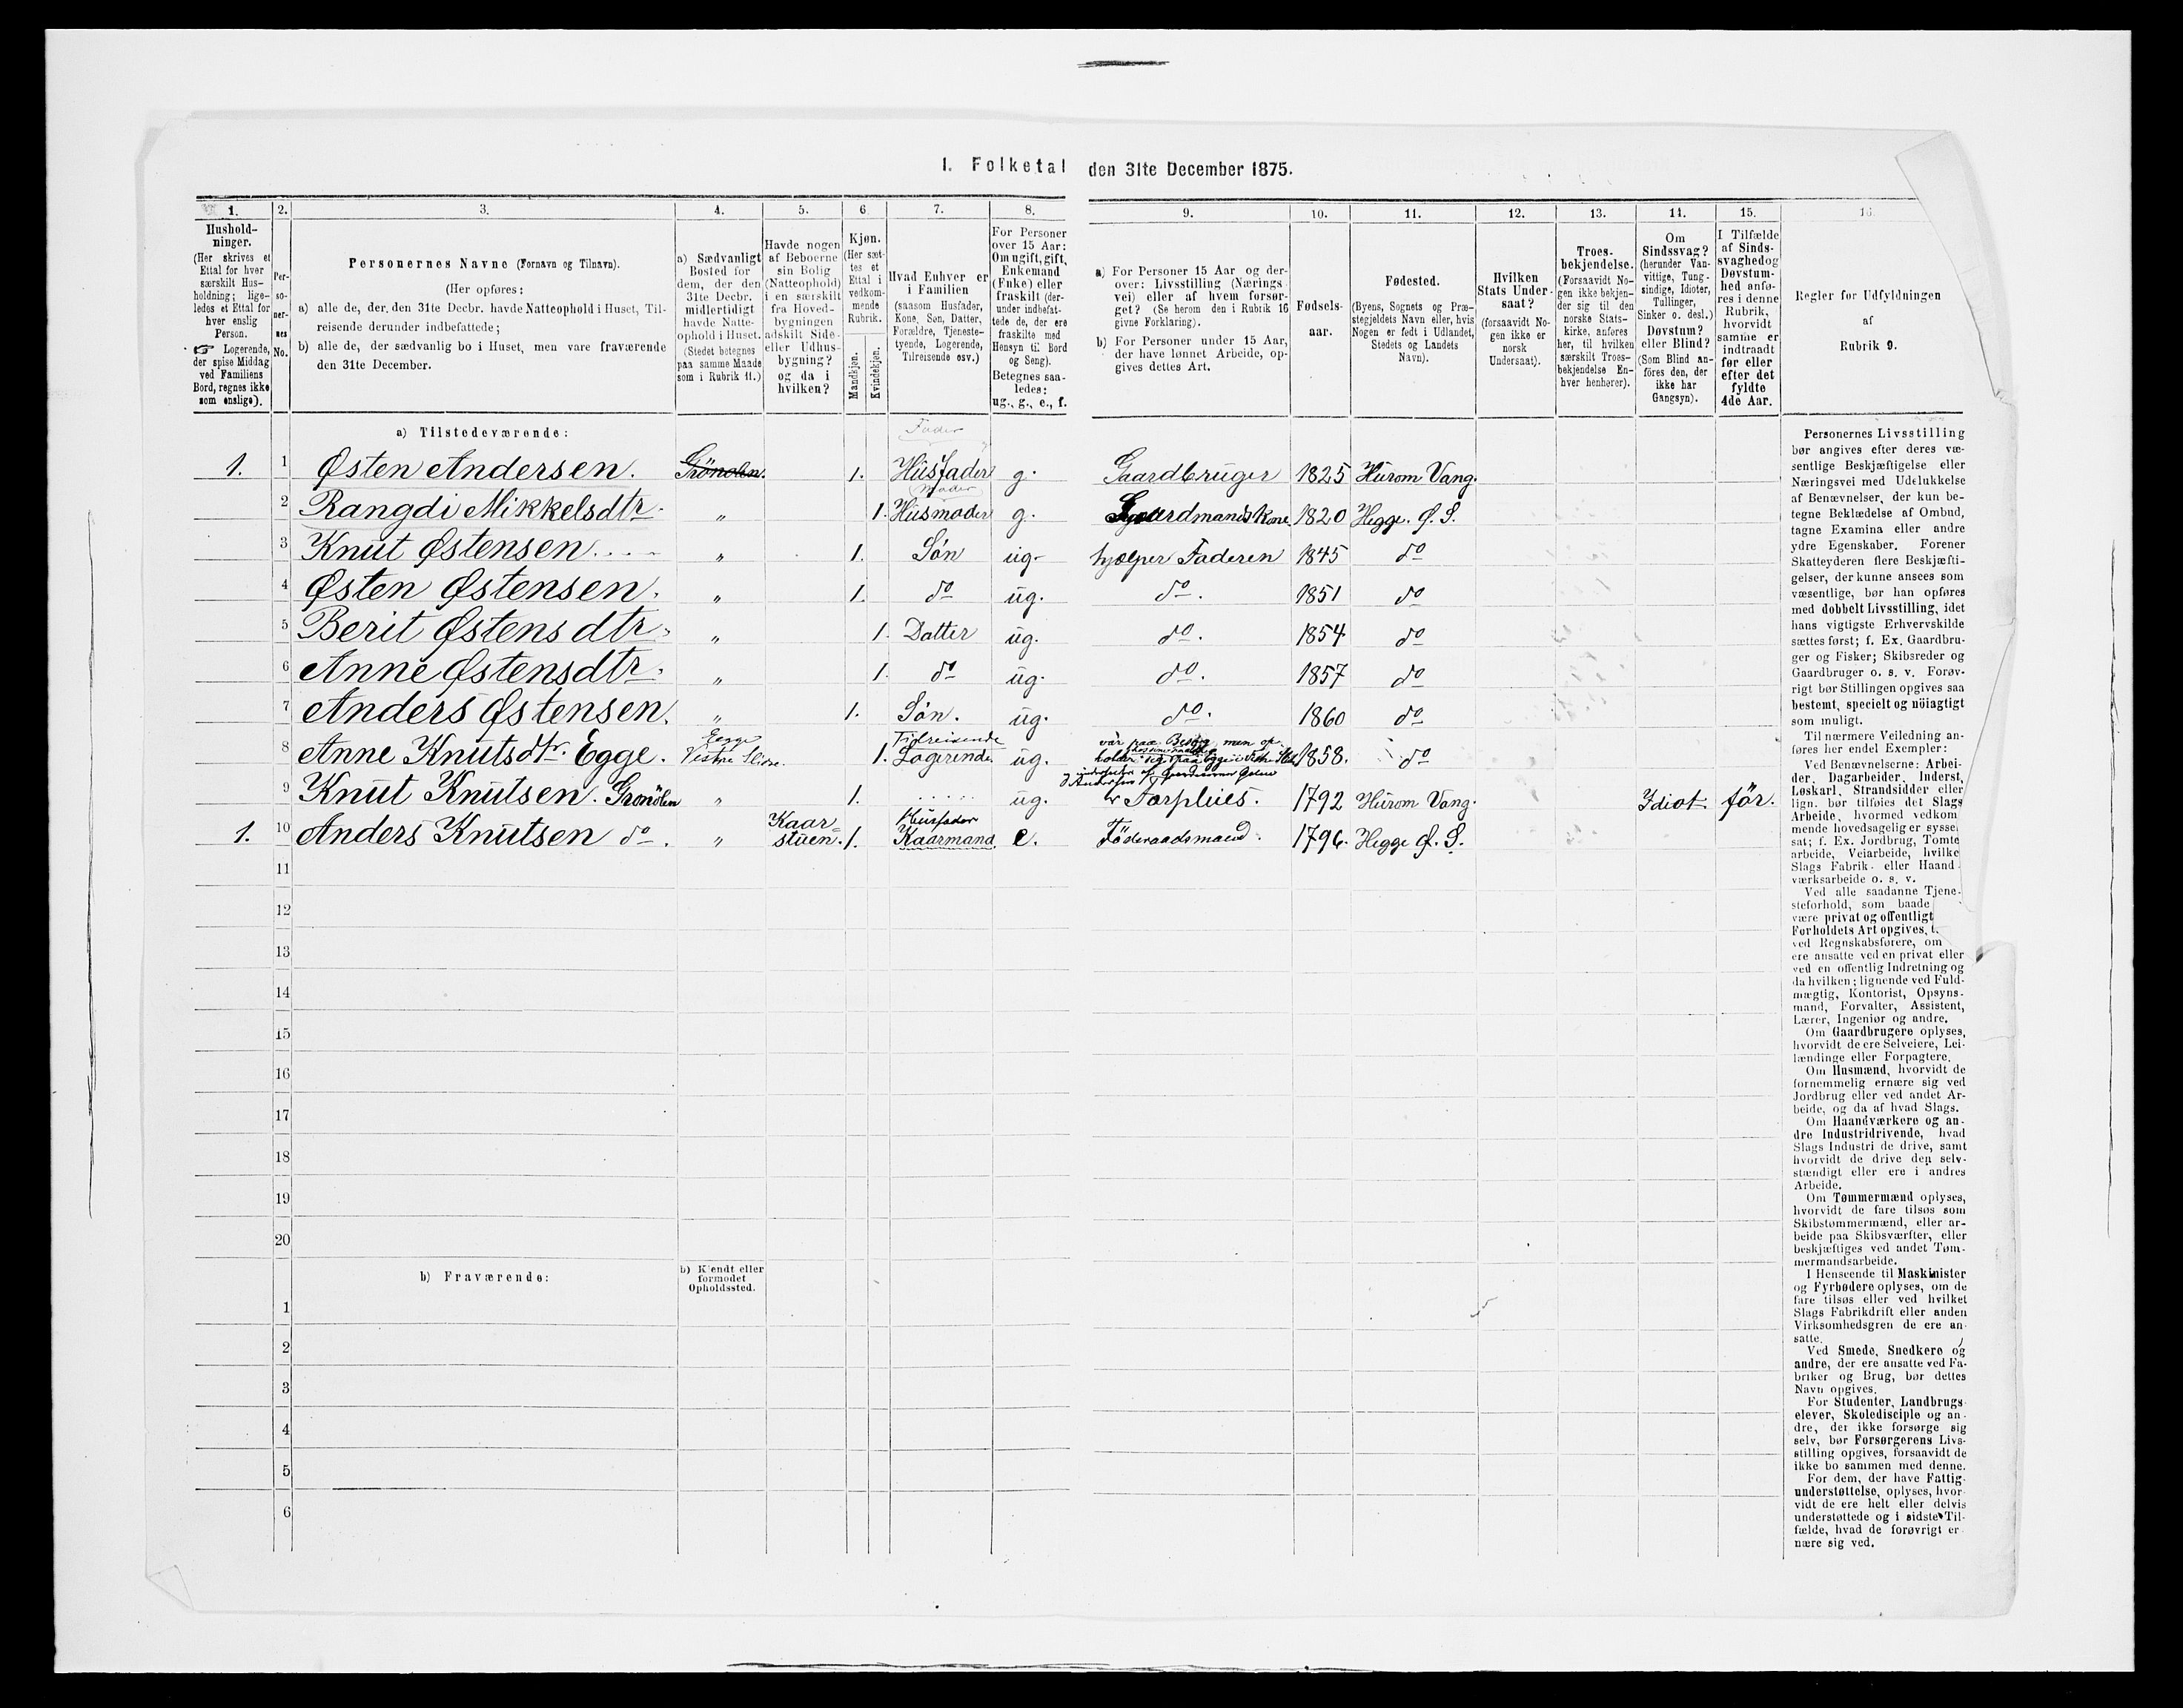 I. Folketal den 31te December 1875.
1. 2. 3. 4. 5. 6 7. 8. 9. 10. 11. 12. 13. 14. 15. 16.
Hushold-
ninger.
(Her skrives et
Ettal for hver
særskilt Hus-
holdning; lige-
ledes et Ettal for
hver enslig
Person.
☞ Logerende,
der spise Middag
ved Familiens
Bord, regnes ikke
som enslige).
Per-
so-
ner-
nes
No.
Personernes Navne (Fornavn og Tilnavn).
(Her opføres:
a) alle de, der den 31te Decbr. havde Natteophold i Huset, Til-
reisende derunder indbefattede;
b) alle de, der sædvanlig bo i Huset, men vare fraværende
den 31te December.
a) Sædvanligt
Bosted for
dem, der den
31te Decbr.
midlertidigt
havde Natte-
ophold i Huset.
(Stedet betegnes
paa samme Maade
som i Rubrik 11.)
Havde nogen
af Beboerne
sin Bolig
(Natteophold)
i en særskilt
fra Hoved-
bygningen
adskilt Side-
eller Udhus-
bygning?
og da i
hvilken?
Kjøn.
(Her sæt-
tes et
Ettal i
vedkom-
mende
Rubrik.
Mandkjøn.
Kvindekjøn.
Hvad Enhver er
i Familien
(saasom Husfader,
Kone, Søn, Datter,
Forældre, Tjeneste-
tyende, Logerende,
Tilreisende osv.)
For Personer
over 15 Aar:
Om ugift, gift,
Enkemand
(Enke) eller
fraskilt (der-
under indbefat-
tede de, der ere
fraskilte med
Hensyn til Bord
og Seng).
Betegnes saa-
ledes:
ug., g., e., f.
a) For Personer 15 Aar og der-
over: Livsstilling (Nærings
vei) eller af hvem forsør-
get? (Se herom den i Rubrik 16
givne Forklaring).
b) For Personer under 15 Aar,
der have lønnet Arbeide, op-
gives dettes Art.
Fødsels-
aar.
Fødested.
(Byens, Sognets og Præ-
stegjeldets Navn eller, hvis
Nogen er født i Udlandet,
Stedets og Landets
Navn).
Hvilken
Stats Under-
saat?
(forsaavidt No-
gen ikke er
norsk
Undersaat).
Troes-
bekjendelse.
(Forsaavidt No-
gen ikke bekjen-
der sig til den
norske Stats-
kirke, anføres
her, til hvilken
særskilt Troes-
bekjendelse En-
hver henhører).
Om
Sindssvag?
(herunder Van-
vittige, Tung-
sindige, Idioter,
Tullinger,
Sinker o. desl.)
Døvstum?
eller Blind?
(Som Blind an-
føres den, der
ikke har
Gangsyn).
I Tilfælde
af Sinds-
svaghed og
Døvstum-
hed anfø-
res i denne
Rubrik,
hvorvidt
samme er
indtraadt
før eller
efter det
fyldte
4de Aar.
Regler for Udfyldningen
af
Rubrik 9.
a) Tilstedeværende:
Fader
1. 1 Østen Andersen. Grönolen. 1. Husfader g. Gaardbruger 1825 Hurom Vang.
Moder
2 Rangdi Mikkelsdtr. „ 1. Husmoder g. Gaardmands Kone 1820 Hegge. Ø. S.
3 Knut Østensen „ 1. Søn ug. hjælper Faderen 1845 do
4 Østen Østensen. „ 1. do ug. do. 1851 do
5 Berit Østensdtr. „ 1. Datter ug. do. 1854 do
6 Anne Østensdtr. „ 1. do ug. do. 1857 do
7 Anders Østensen. „ 1. Søn. ug. do. 1860 do
8 Anne Knutsdtr. Egge. Egge Vestre Slidre. 1. Tilreisende Logerende ug. vår paa Besøg men op-
holder sig 1858. do
9 Knut Knutsen. Gronölen „ 1. ug. 1792 Hurom Vang. Idiot. för.
1. 10 Anders Knutsen do. „ Kaar-
stuen. 1. Husfader Kaarmand e. Föderaadsmand. 1796. Hegge Ø. S.
11
12
13
14
15
16
17
18
19
20
b) Fraværende:
b) Kjendt eller
formodet
Opholdssted.
1
2
3
4
5
6
Personernes Livsstilling
bør angives efter deres væ-
sentlige Beskjæftigelse eller
Næringsvei med Udelukkelse
af Benævnelser, der kun be-
tegne Beklædelse af Ombud,
tagne Examina eller andre
ydre Egenskaber. Forener
Skatteyderen flere Beskjæfti-
gelser, der kunne ansees som
væsentlige, bør han opføres
med dobbelt Livsstilling, idet
hans vigtigste Erhvervskilde
sættes først; f. Ex. Gaardbru-
ger og Fisker; Skibsreder og
Gaardbruger o. s. v. Forøv-
rigt bør Stillingen opgives saa
bestemt, specielt og nöiagtigt
som muligt.
Til nærmere Veiledning an-
føres her endel Exempler:
Ved Benævnelserne: Arbei-
der, Dagarbeider, Inderst,
Løskarl, Strandsidder eller
lign. bør tilføies det Slags
Arbeide, hvormed vedkom
mende hovedsagelig er syssel
sat; f. Ex. Jordbrug, Tomte
arbeide, Veiarbeide, hvilke
Slags Fabrik- eller Haand
værksarbeide o. s. v.
Ved alle saadanne Tjene-
steforhold, som baade
være privat og offentligt
Forholdets Art opgives, t.
ved Regnskabsførere, om
ere ansatte ved en privat eller
ved en offentlig Indretning og
da hvilken; lignende ved Fuld-
mægtig, Kontorist, Opsyns-
mand, Forvalter, Assistent,
Lærer, Ingeniør og andre.
Om Gaardbrugere oplyses,
hvorvidt de ere Selveiere, Lei-
lændinge eller Forpagtere.
Om Husmænd, hvorvidt de
fornemmelig ernære sig ved
Jordbrug eller ved andet Ar-
beide, og da af hvad Slags.
Om Haandværkere og an-
dre Industridrivende, hvad
Slags Industri de drive, samt
hvorvidt de drive den selv-
stændigt eller ere i andres
Arbeide.
Om Tømmermænd oplyses,
hvorvidt de fare tilsøs som
Skibstømmermænd, eller ar-
beide paa Skibsværfter, eller
beskjæftiges ved andet Tøm-
mermandsarbeide.
I Henseende til Maskinister
og Fyrbødere oplyses, om de
fare tilsøs eller ved hvilket
Slags Fabrikdrift eller anden
Virksomhedsgren de ere an-
satte.
Ved Smede, Snedkere og
andre, der ere ansatte ved Fa-
briker og Brug, bør dettes
Navn opgives.
For Studenter, Landbrugs-
elever, Skoledisciple og an-
dre, der ikke forsørge sig
selv, bør Forsørgerens Livs-
stilling opgives, forsaavidt de
ikke bo sammen med denne.
For dem, der have Fattig-
understøttelse, oplyses, hvor-
vidt de ere helt eller delvis
understøttede og i sidste Til-
fælde, hvad de forøvrigt er-
nære sig ved.